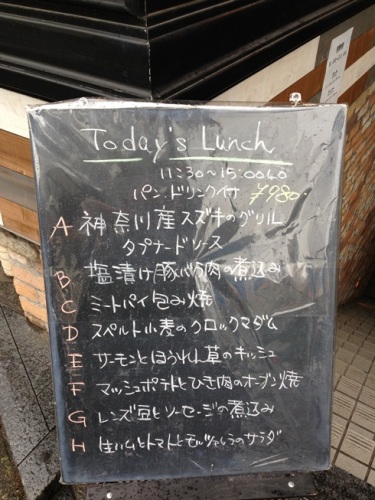 Today's Lunch
11:30~15:00LO
パン、ドリンク付 ¥980
A 神奈川産スズキのグリル
タプナードソース
B 塩漬け豚バラ肉の煮込み
C ミートパイ包み焼
D スペルト小麦のクロックマダム
E サーモンとほうれん草のキッシュ
F マッシュポテトとひき肉のオーブン焼
G レンズ豆とソーセージの煮込み
H 生ハムとトマトとモッツァレラのサラダ